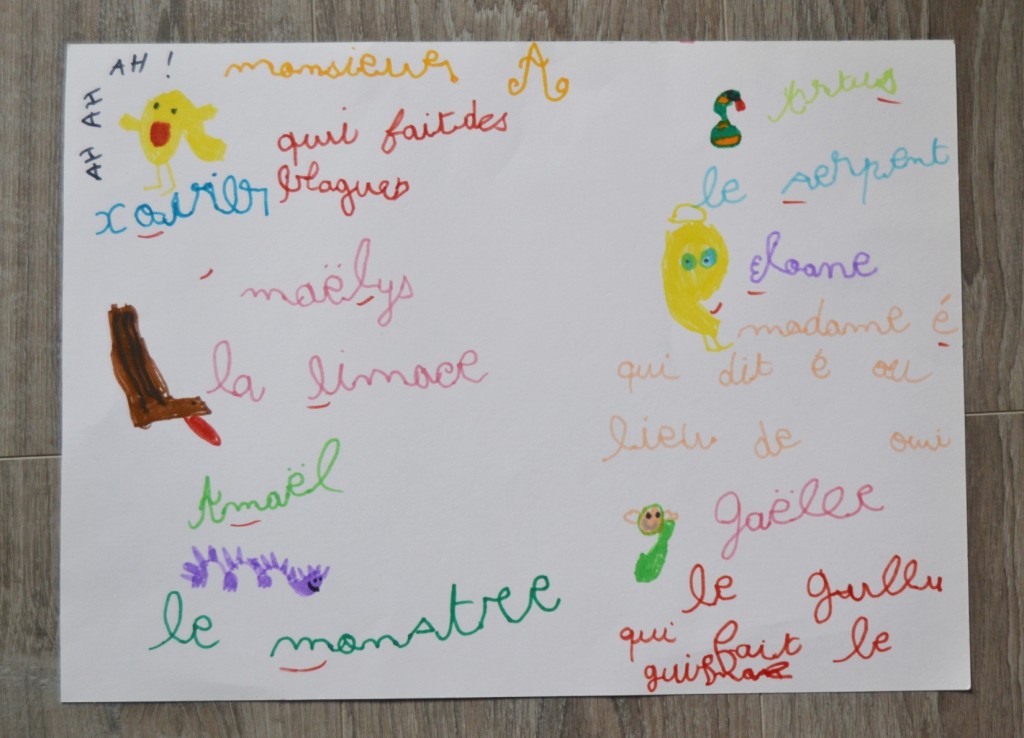 AH !
AH AH
monsieur A
qui fait des
blagues
xavier
maëlys
la limace
Amaël
le monstre
artus
le serpent
eloane
madame é
qui dit é ou
lieu de oui
gaëlle
le gullu
qui fait le